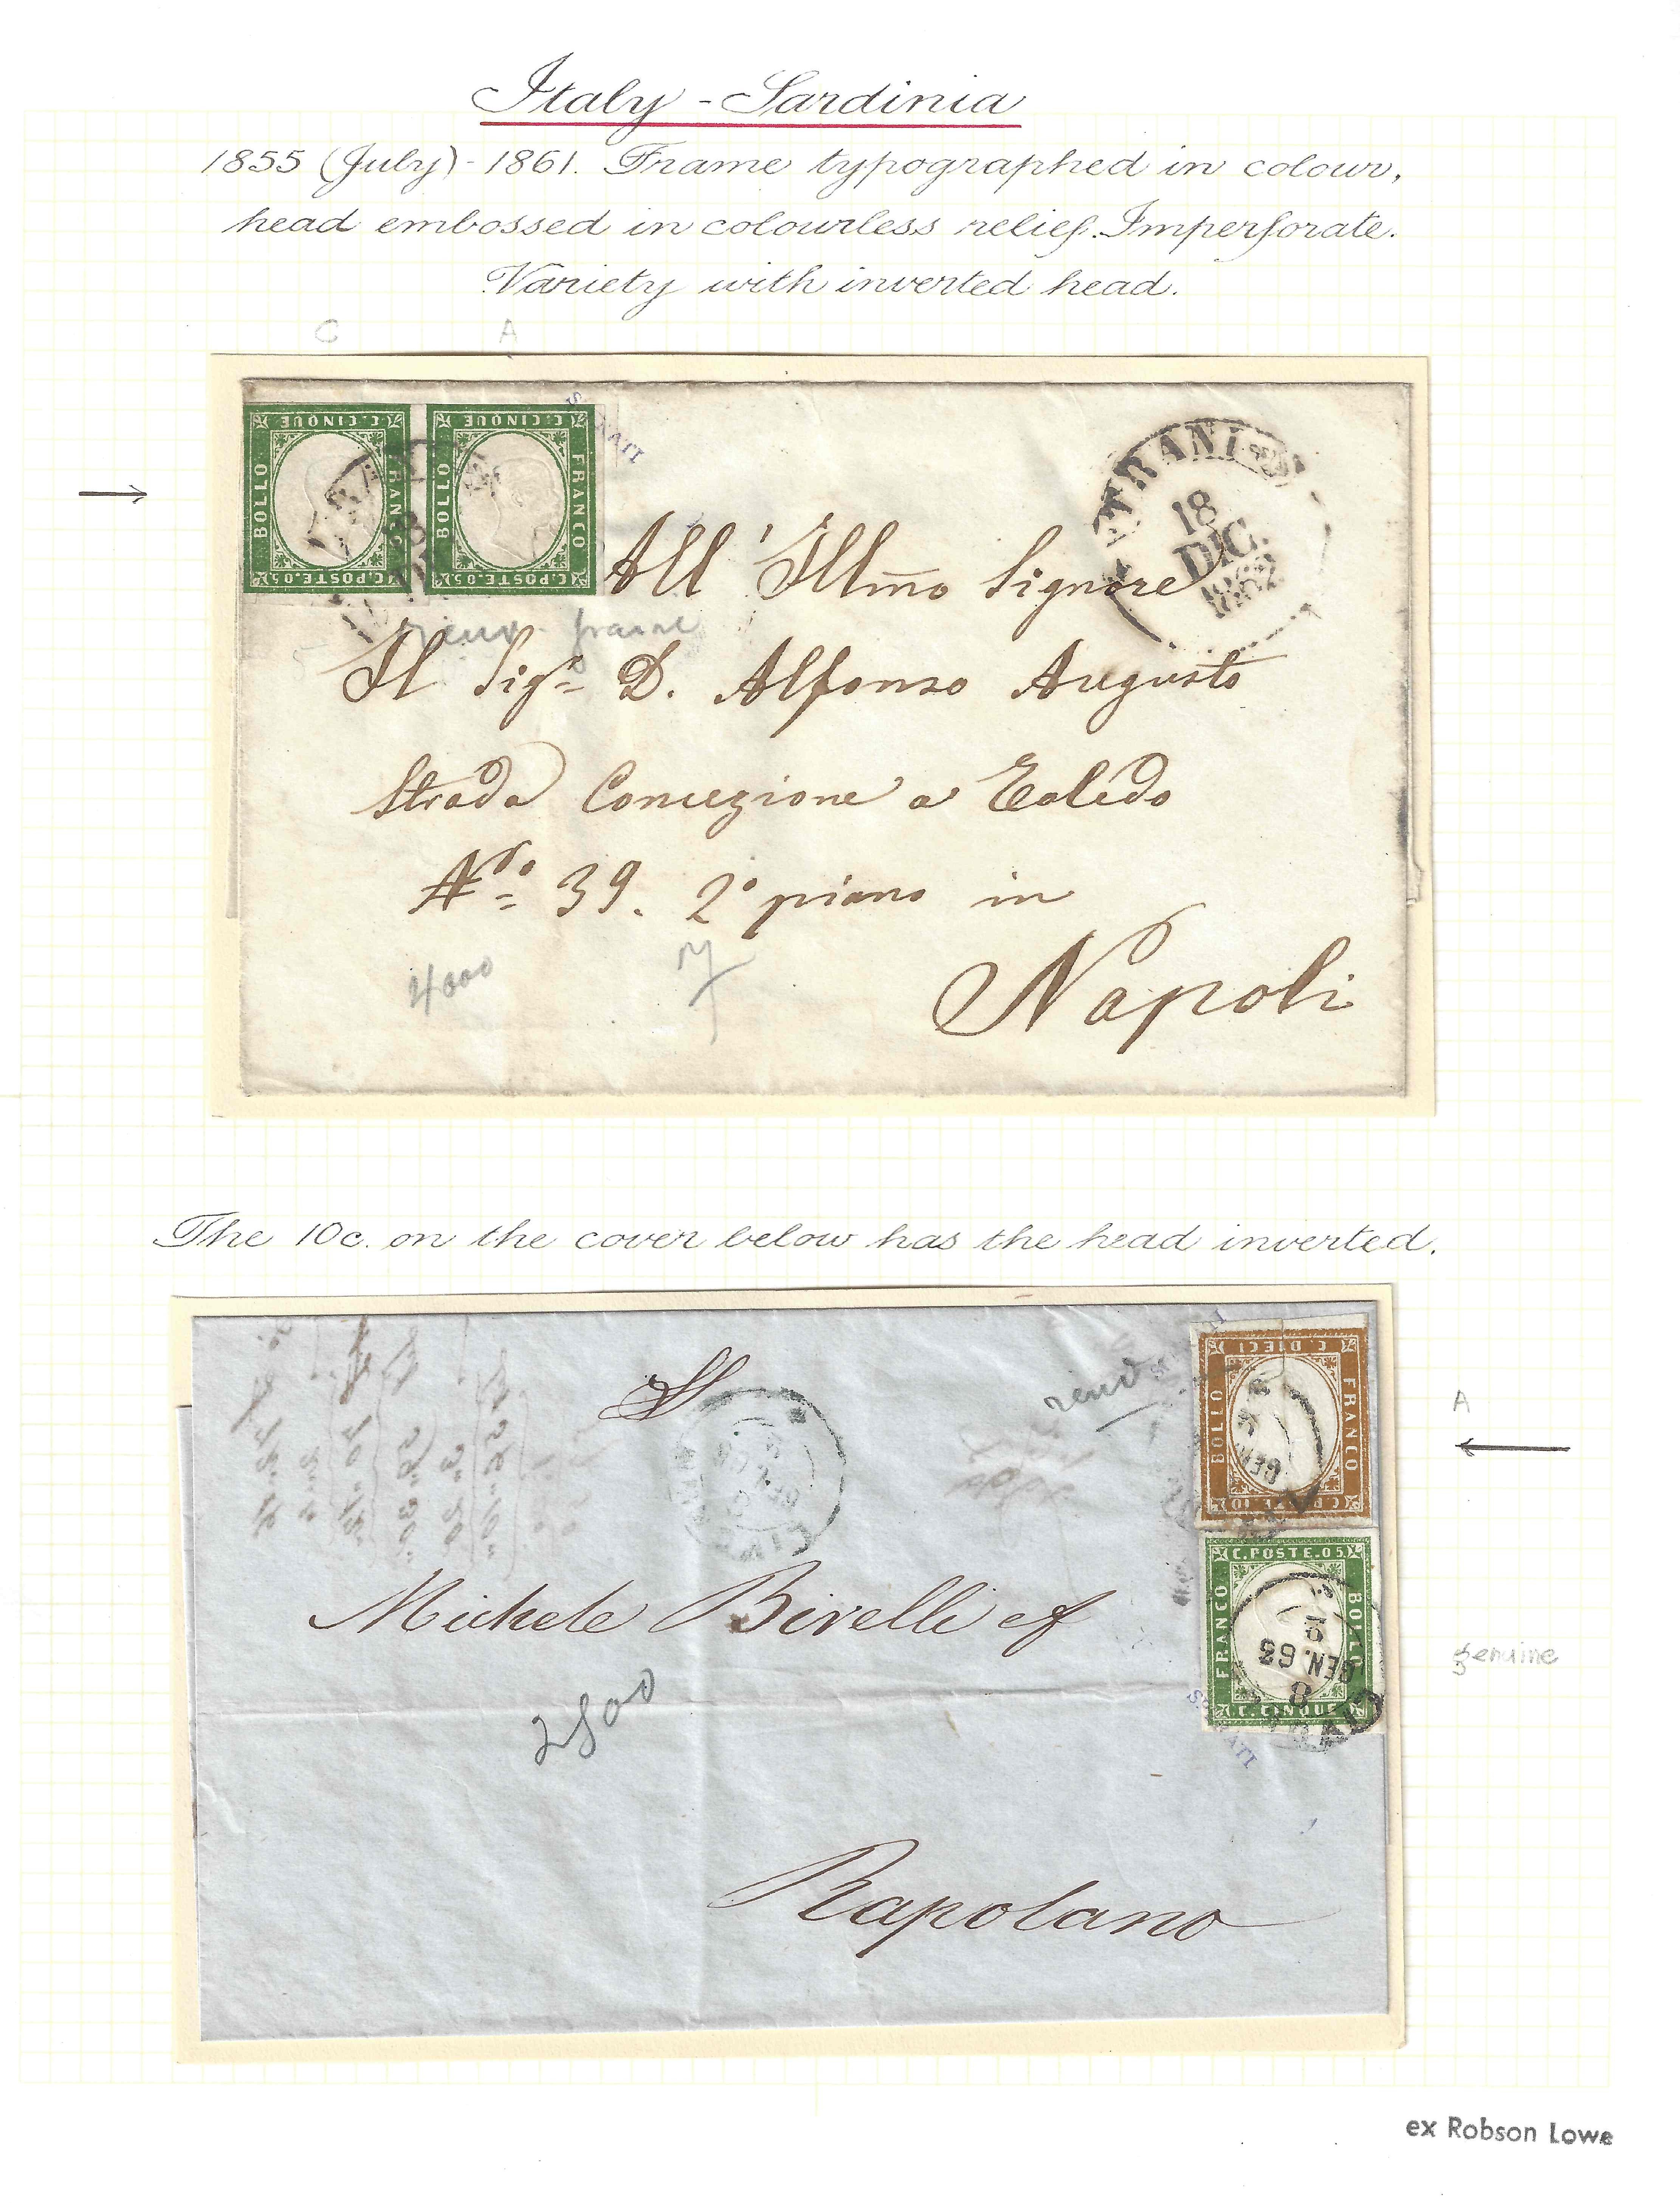 Italy - Sardinia
1855 (July) - 1861. Frame typographed in colour,
head embossed in colourless relief. Imperforate.
Variety with inverted head.
C A
C. CINQUE
BOLLO
FRANCO
C. POSTE. 05
C. CINQUE
BOLLO
FRANCO
C. POSTE. 05
TRANI
18
DIC.
1862
All' Illmo Signore
frame
Il Sigr D. Alfonso Augusto
Strada Concezione a Toledo
No 39. 2o piano in
4000
Napoli
The 10c. on the cover below has the head inverted.
C. DIECI
BOLLO
FRANCO
C. POSTE 10
GEN
A
C. POSTE. 05
FRANCO
BOLLO
C. CINQUE
GEN. 63
8
genuine
Michele Birelli ef
2800
Rapolano
ex Robson Lowe